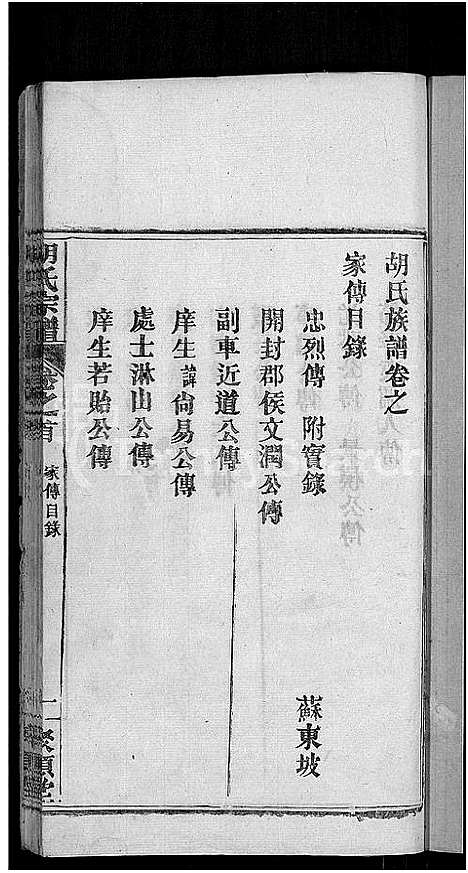 胡氏族譜卷之
家傳目錄
忠烈傳 附實錄 蘇東坡
開封郡侯文潤公傳
副車近道公傳
庠生諱尙易公傳
處士淋山公傳
庠生若貽公傳
胡氏宗譜 卷之首 家傳目錄